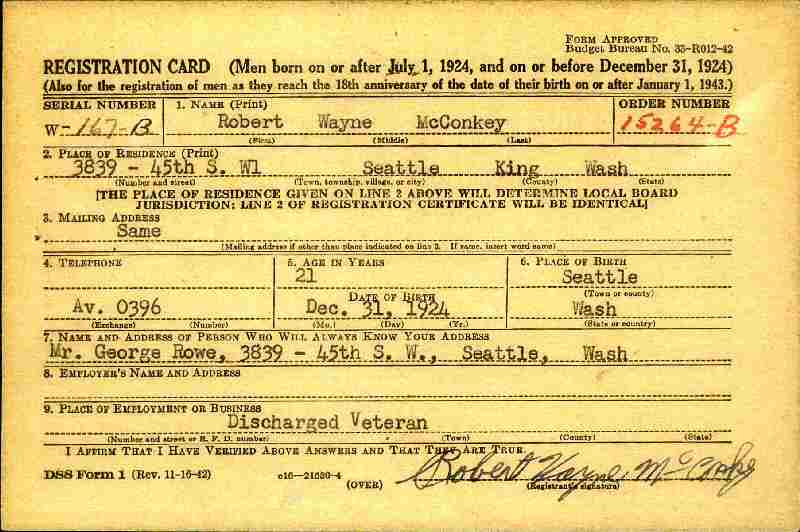 FORM APPROVED
Budget Bureau No. 33-R012-42
REGISTRATION CARD (Men born on or after July 1, 1924, and on or before December 31, 1924)
(Also for the registration of men as they reach the 18th anniversary of the date of their birth on or after January 1, 1943.)
SERIAL NUMBER 1. NAME (Print) ORDER NUMBER
W-167-B Robert Wayne McConkey 15264-B
(First) (Middle) (Last)
2. PLACE OF RESIDENCE (Print)
3839 - 45th S. Wl Seattle King Wash
(Number and street) (Town, township, village, or city) (County) (State)
[THE PLACE OF RESIDENCE GIVEN ON LINE 2 ABOVE WILL DETERMINE LOCAL BOARD
JURISDICTION; LINE 2 OF REGISTRATION CERTIFICATE WILL BE IDENTICAL]
3. MAILING ADDRESS
Same
(Mailing address if other than place indicated on line 2. If same, insert word same)
4. TELEPHONE 5. AGE IN YEARS 6. PLACE OF BIRTH
21 Seattle
DATE OF BIRTH (Town or county)
Av. 0396 Dec. 31, 1924 Wash
(Exchange) (Number) (Mo.) (Day) (Yr.) (State or country)
7. NAME AND ADDRESS OF PERSON WHO WILL ALWAYS KNOW YOUR ADDRESS
Mr. George Rowe, 3839 - 45th S. W., Seattle, Wash
8. EMPLOYER'S NAME AND ADDRESS
9. PLACE OF EMPLOYMENT OR BUSINESS
Discharged Veteran
(Number and street or R. F. D. number) (Town) (County) (State)
I AFFIRM THAT I HAVE VERIFIED ABOVE ANSWERS AND THAT THEY ARE TRUE.
DSS Form 1 (Rev. 11-16-42) c16—21630-4 Robert Wayne McConkey
(OVER) (Registrant's signature)